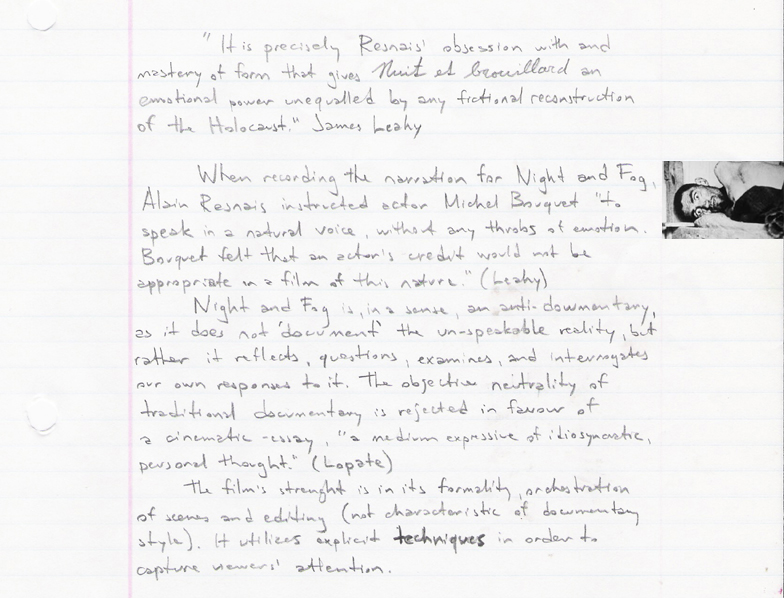 " It is precisely Resnais' obsession with and
mastery of form that gives Nuit et brouillard an
emotional power unequalled by any fictional reconstruction
of the Holocaust." James Leahy
When recording the narration for Night and Fog,
Alain Resnais instructed actor Michel Bouquet "to
speak in a natural voice, without any throbs of emotion.
Bouquet felt that an actor's credit would not be
appropriate in a film of this nature." (Leahy)
Night and Fog is, in a sense, an anti-documentary,
as it does not 'document' the un-speakable reality, but
rather it reflects, questions, examines, and interrogates
our own responses to it. The objective neutrality of
traditional documentary is rejected in favour of
a cinematic-essay, "a medium expressive of idiosyncratic,
personal thought." (Lopate)
The film's strenght is in its formality, orchestration
of scenes and editing (not characteristic of documentary
style). It utilizes explicit techniques in order to
capture viewers' attention.